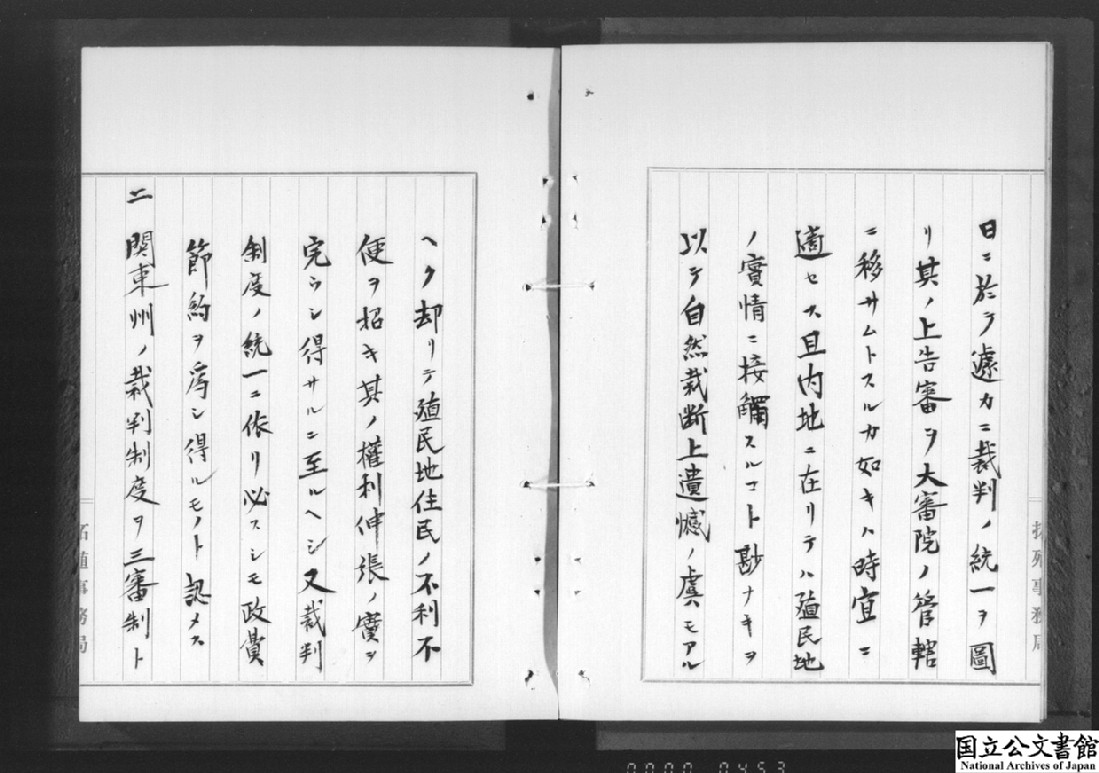 日ニ於テ遽カニ裁判ノ統一ヲ圖
リ其ノ上告審ヲ大審院ノ管轄
ニ移サムトスルカ如キハ時宜ニ
適セス且内地ニ在リテハ殖民地
ノ實情ニ接觸スルコト尠ナキヲ
以テ自然裁断上遺憾ノ虞モアル
拓殖事務局
ヘク却リテ殖民地住民ノ不利不
便ヲ招キ其ノ權利伸張ノ實ヲ
完ウシ得サルニ至ルヘシ又裁判
制度ノ統一ニ依リ必スシモ政費
節約ヲ爲シ得ルモノト認メス
二 関東州ノ裁判制度ヲ三審制ト
拓殖事務局
国立公文書館
National Archives of Japan
0000 0453